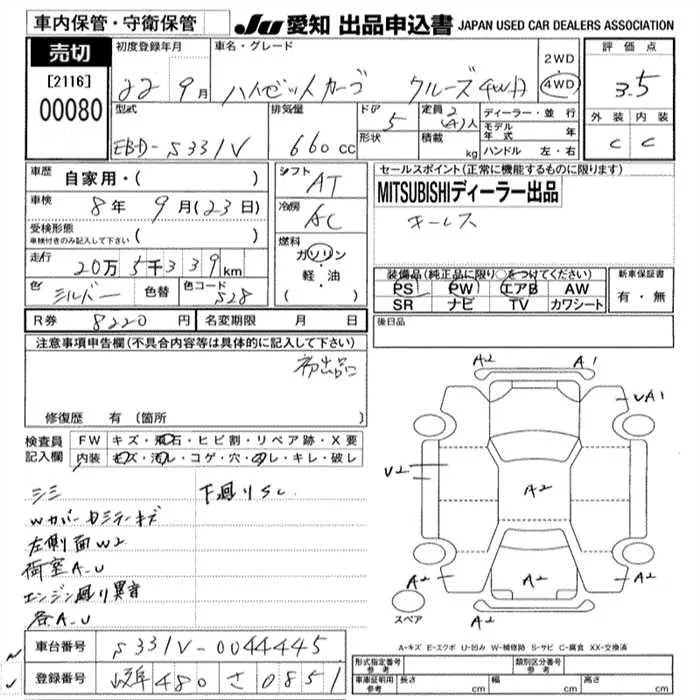 車内保管・守衛保管
JU 愛知 出品申込書 JAPAN USED CAR DEALERS ASSOCIATION
売切
[2116]
00080
初度登録年月
22 9月
車名・グレード
ハイゼットカーゴ クルーズ4WD
2WD
4WD
評価点
3.5
外装 内装
C C
型式
EBD-S331V
排気量
660cc
ドア
5
形状
定員 2
(4)人
積載
kg
ディーラー・並行
モデル年式 年
ハンドル 左・右
車歴
自家用・( )
車検
8年 9月(23日)
受検形態
車検付きのみ記入して下さい
( )
走行
20万5千339km
色
シルバー
色替
色コード
S28
シフト
AT
冷房
AC
燃料
ガソリン
・軽・油
( )
セールスポイント(正常に機能するものに限ります)
MITSUBISHIディーラー出品
キーレス
装備品(純正品に限り○をつけてください)
PS PW エアB AW
SR ナビ TV カワシート
新車保証書
有・無
R券 8220円
名変期限 月 日
後日品
注意事項申告欄(不具合内容等は具体的に記入して下さい)
初出品
修復歴 有(箇所 )
検査員記入欄
FW キズ・飛石・ヒビ割・リペア跡・X要
内装 キズ・汚れ・コゲ・穴・・キレ・破レ
シミ
下廻りSC
Wカバー
左側面W2
荷室A.U
エンジン廻り異音
各A.U
A2 A1
UA1
U2
A2
A2
A2 A2
A2
スペア
A-キズ E-エクボ U-凹み W-補修跡 S-サビ C-腐食 XX-交換済
車台番号 S331V-0044445
登録番号 岐阜 480 さ 0851
形式指定番号
参考
類別区分番号
参考
車庫証明用
参考
長さ cm
幅 cm
高さ cm